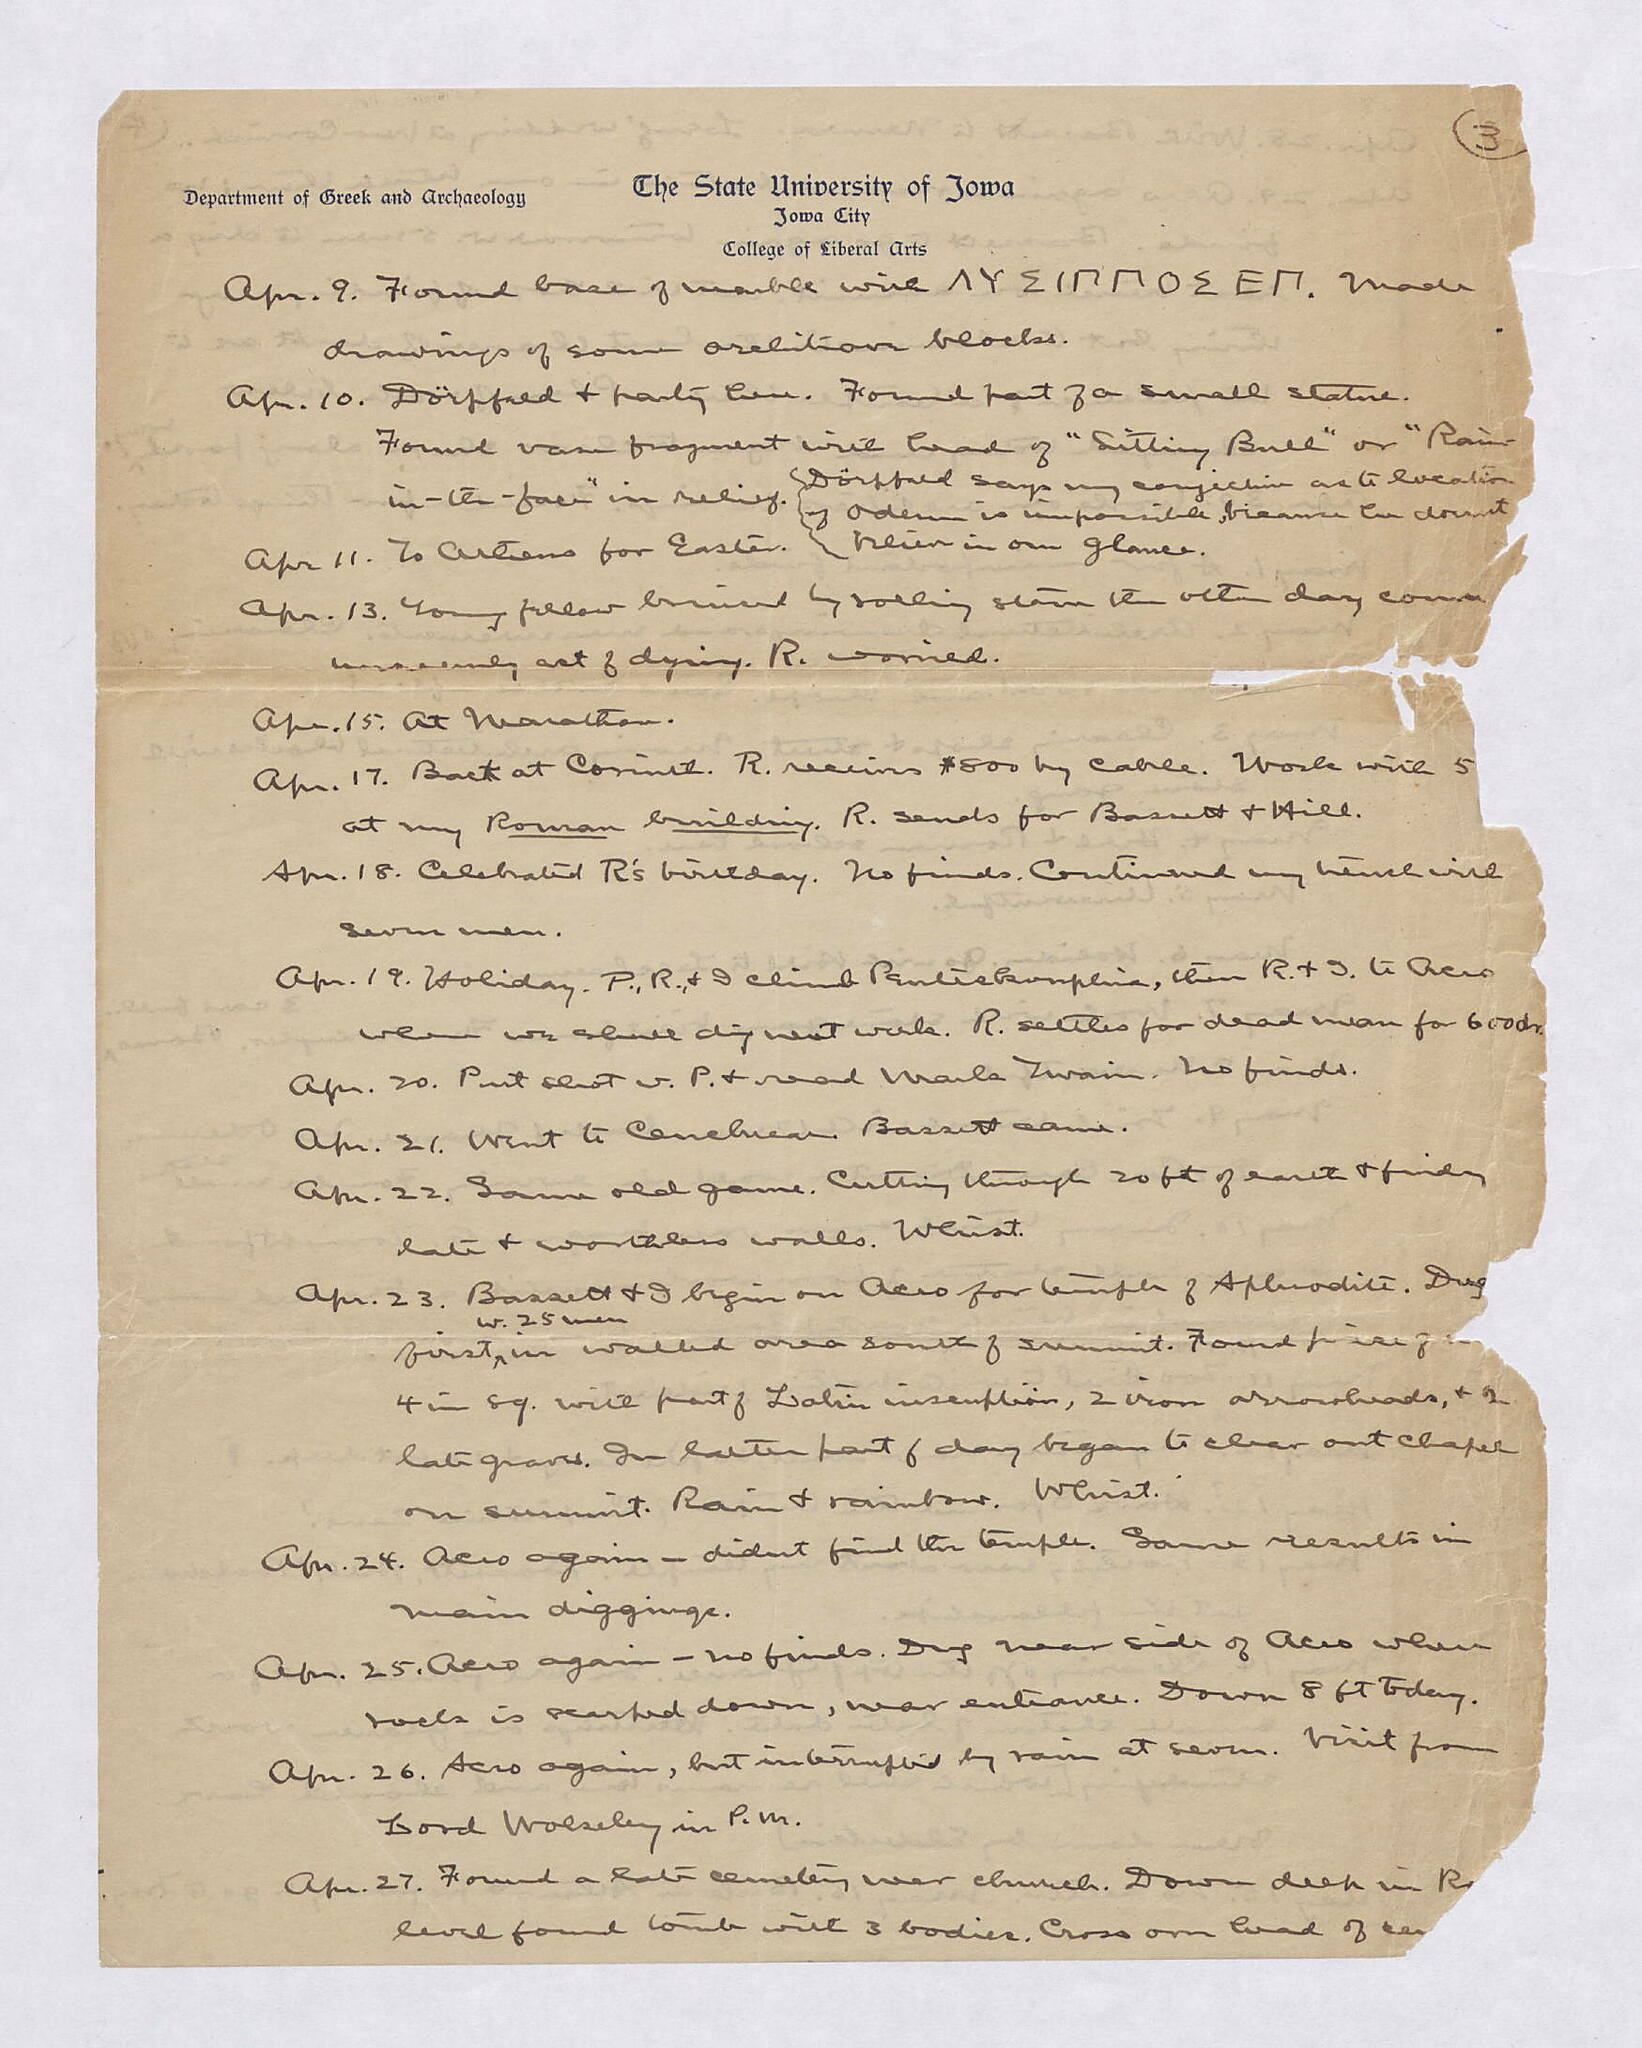 3
Department of Greek and Archaeology
The State University of Iowa
Iowa City
College of Liberal Arts
Apr. 9. Found base of marble with ΛΥΣΙΠΠΟΣΕΠ. Made
drawings of some architrave blocks.
Apr. 10. Dörpfeld & party here. Found part of a small statue.
Found vase fragment with head of "Sitting Bull" or "Rain-
in-the-face" in relief. Dörpfeld says my conjecture as to location
of Odeum is impossible, because he doesn't
believe in our Glauce.
Apr 11. To Athens for Easter.
Apr. 13. Young fellow bruised by rolling stone the other day
unseemly act of dying. R. worried.
Apr. 15. At Marathon.
Apr. 17. Back at Corinth. R. receives $800 by cable. Work with 5
at my Roman building. R. sends for Bassett & Hill.
Apr. 18. Celebrated R's birthday. No finds. Continued my trench with
seven men.
Apr. 19. Holiday. P., R., & I climb Penteskouphia, then R. & I. to Acro
where we shall dig next week. R. settles for dead man for 600 dr.
Apr. 20. Put shot w. P. & read Mark Twain. No finds.
Apr. 21. Went to Cenchreae. Bassett came.
Apr. 22. Same old game. Cutting through 20 ft of earth & finding
late & worthless walls. Whist.
Apr. 23. Bassett & I begin on Acro for temple of Aphrodite. Dug
first w. 25 men in walled area south of summit. Found piece of
4 in sq. with part of Latin inscription, 2 iron arrowheads, & 2
late graves. In latter part of day began to clear out chapel
on summit. Rain & rainbow. Whist.
Apr. 24. Acro again – didn't find the temple. Same results in
main diggings.
Apr. 25. Acro again – no finds. Dug near side of Acro where
rock is scarped down, near entrance. Down 8 ft today.
Apr. 26. Acro again, but interrupted by rain at seven. Visit from
Lord Wolseley in P.M.
Apr. 27. Found a late cemetery near church. Down deep in
level found tomb with 3 bodies. Cross over head of